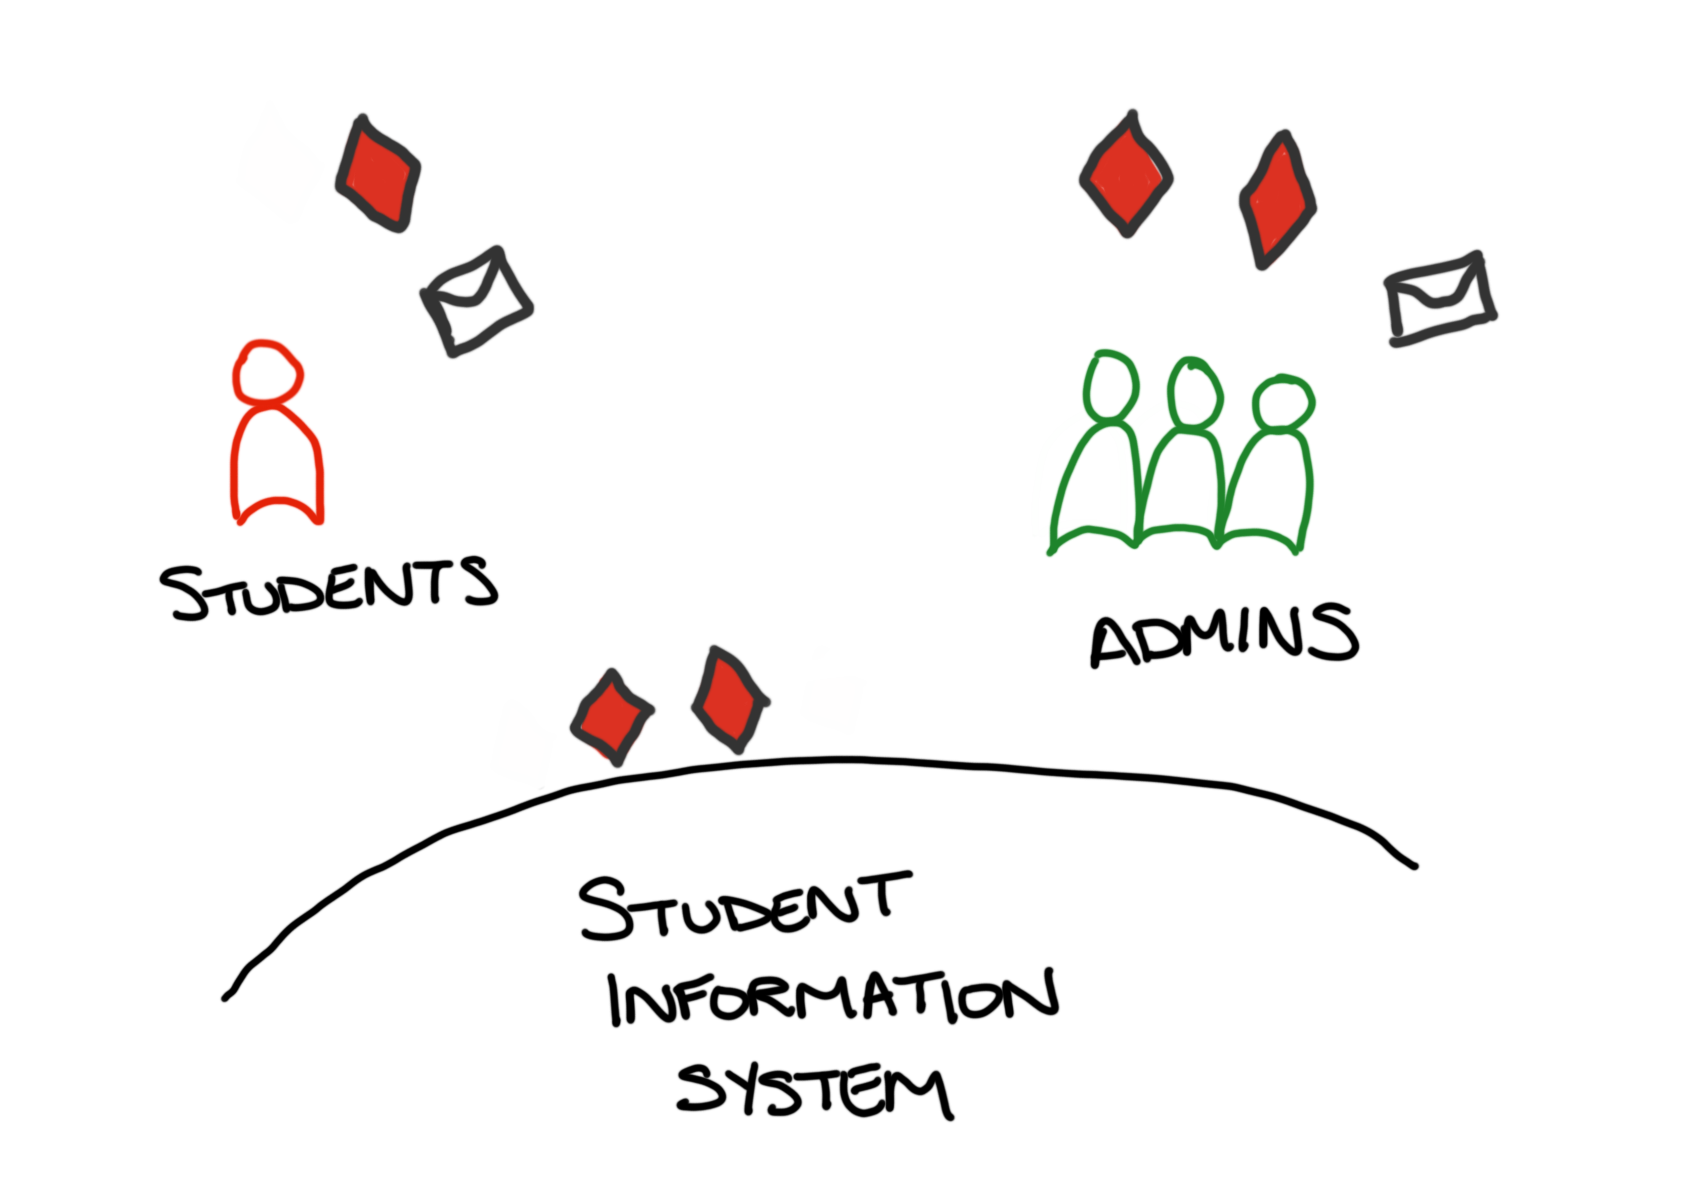 STUDENTS
ADMINS
STUDENT
INFORMATION
SYSTEM